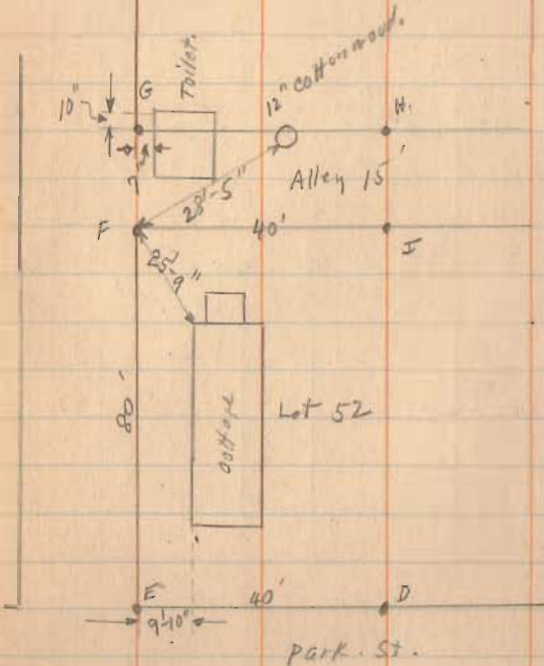 Toilet.
12" cottonwood.
10"
G
H.
7
Alley 15'
28'-5"
F
40'
I
25'-9"
80'
Cottage
Lot 52
E
40'
D
9'-10"
Park. St.